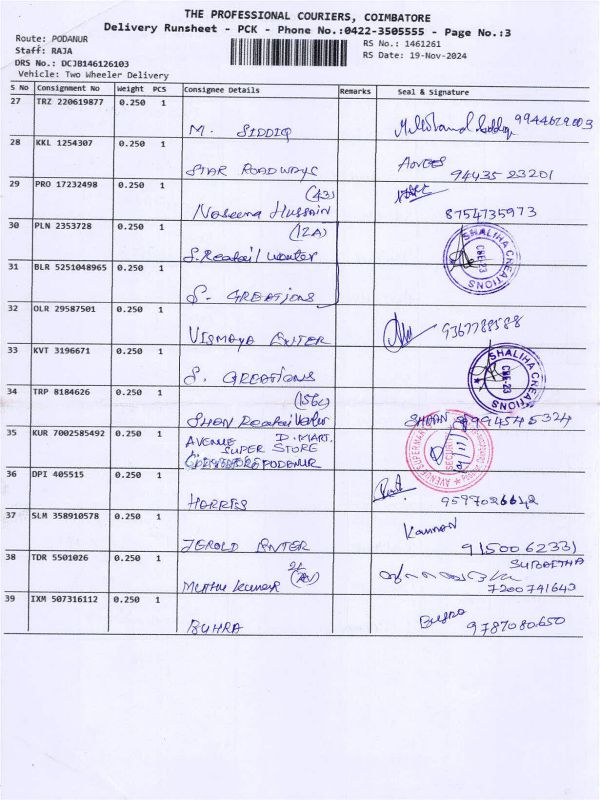 THE PROFESSIONAL COURIERS, COIMBATORE
Delivery Runsheet - PCK - Phone No.:0422-3505555 - Page No.:3
Route: PODANUR
RS No.: 1461261
Staff: RAJA
RS Date: 19-Nov-2024
DRS No.: DCJB146126103
Vehicle: Two Wheeler Delivery
S No Consignment No Weight PCS Consignee Details Remarks Seal & Signature
27 TRZ 220619877 0.250 1
M. SIDDIQ
28 KKL 1254307 0.250 1
STAR ROADWAYS
94435 23201
29 PRO 17232498 0.250 1
(43)
Naseema Hussain
8754735973
30 PLN 2353728 0.250 1
(12A)
SHALIHA CREATIONS
CBE-23
31 BLR 5251048965 0.250 1
S. CREATIONS
32 OLR 29587501 0.250 1
VISMAYA ENTER
9367788588
33 KVT 3196671 0.250 1
S. CREATIONS
SHALIHA CREATIONS
CBE-23
34 TRP 8184626 0.250 1
9994545324
35 KUR 7002585492 0.250 1
AVENUE D. MART.
SUPER STORE
PODANUR
AVENUE SUPERMARTS
SECURITY
36 DPI 405515 0.250 1
HARRIS
37 SLM 358910578 0.250 1
JEROLD ENTER
Kannan
9150062331
38 TDR 5501026 0.250 1
Muthu Kumar
7200741643
39 IXM 507316112 0.250 1
BUHRA
Buhra
9787080650